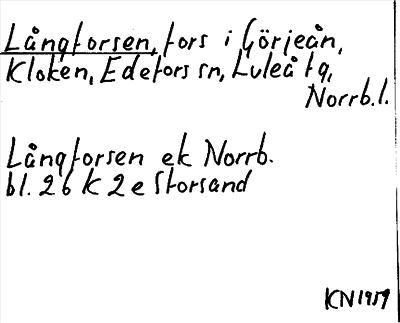 Långforsen, fors i Görjeån,
Kloken, Edefors sn, Luleå tg,
Norrb.l.
Långforsen ek Norrb.
bl. 26 K 2 e Storsand
KN 1959